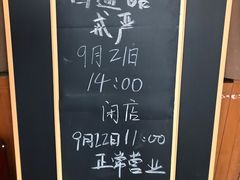 戒严
9月21日
14:00
闭店
9月22日11:00
正常营业